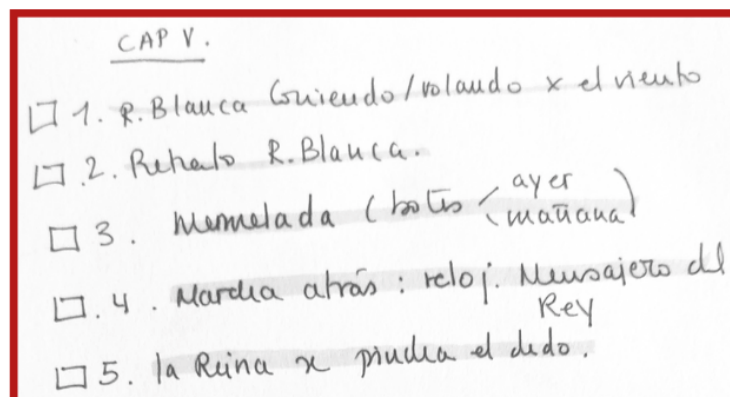 CAP V.
1. R. Blanca Corriendo/volando x el viento
2. Retrato R. Blanca.
3. Mermelada (botes < ayer
mañana)
4. Marcha atrás: reloj. Mensajero del
Rey
5. la Reina x pincha el dedo.